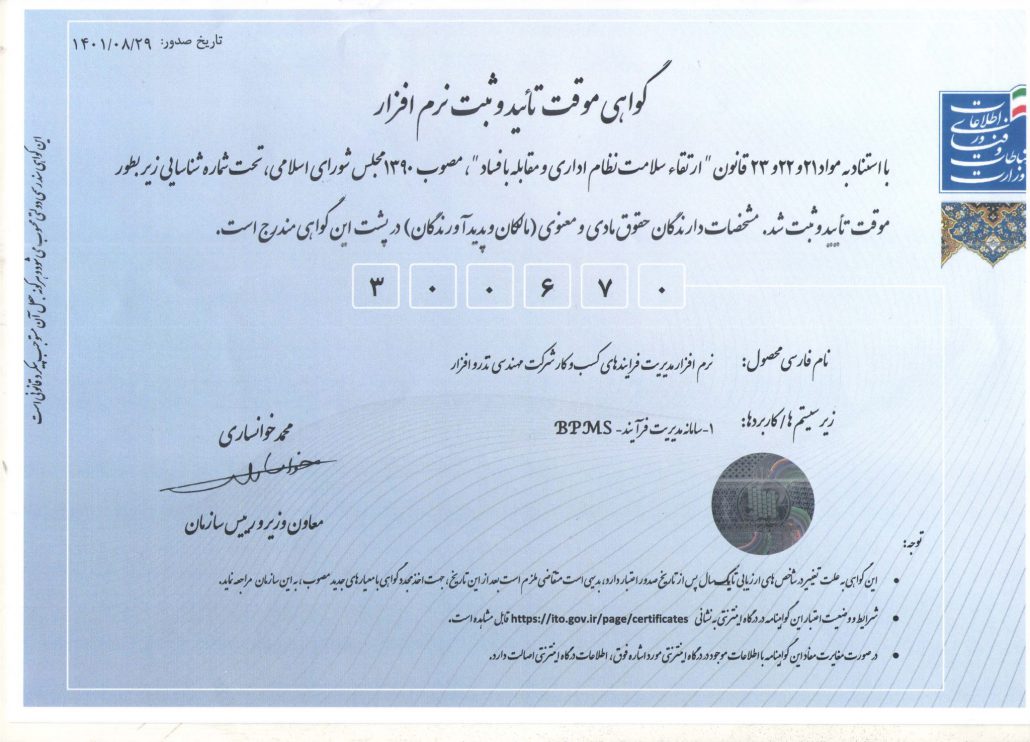 تاریخ صدور: ۱۴۰۱/۰۸/۲۹
گواهی موقت تأئید و ثبت نرم افزار
با استناد به مواد ۲۱ و ۲۲ و ۲۳ قانون "ارتقاء سلامت نظام اداری و مقابله با فساد"، مصوب ۱۳۹۰ مجلس شورای اسلامی، تحت شماره شناسایی زیر بطور
موقت تأیید و ثبت شد. مشخصات دارندگان حقوق مادی و معنوی (مالکان و پدیدآورندگان) در پشت این گواهی مندرج است.
۳ ۰ ۰ ۶ ۷ ۰
نام فارسی محصول: نرم افزار مدیریت فرایندهای کسب و کار شرکت مهندسی تذرو افزار
زیر سیستم ها/کاربردها: ۱-سامانه مدیریت فرآیند- BPMS
محمد خوانساری
معاون وزیر و رییس سازمان
توجه:
• این گواهی به علت تغییر در شاخص های ارزیابی تا یک سال پس از تاریخ صدور اعتبار دارد، بدیهی است متقاضی ملزم است بعد از این تاریخ، جهت اخذ مجدد گواهی با معیارهای جدید مصوب، به این سازمان مراجعه نماید.
• شرایط و وضعیت اعتبار این گواهینامه در درگاه اینترنتی به نشانی https://ito.gov.ir/page/certificates قابل مشاهده است.
• در صورت مغایرت مفاد این گواهینامه با اطلاعات موجود در درگاه اینترنتی مورد اشاره فوق، اطلاعات درگاه اینترنتی اصالت دارد.
این گواهی سندی دولتی محسوب می شود و هرگونه جعل آن مستوجب پیگرد قانونی است